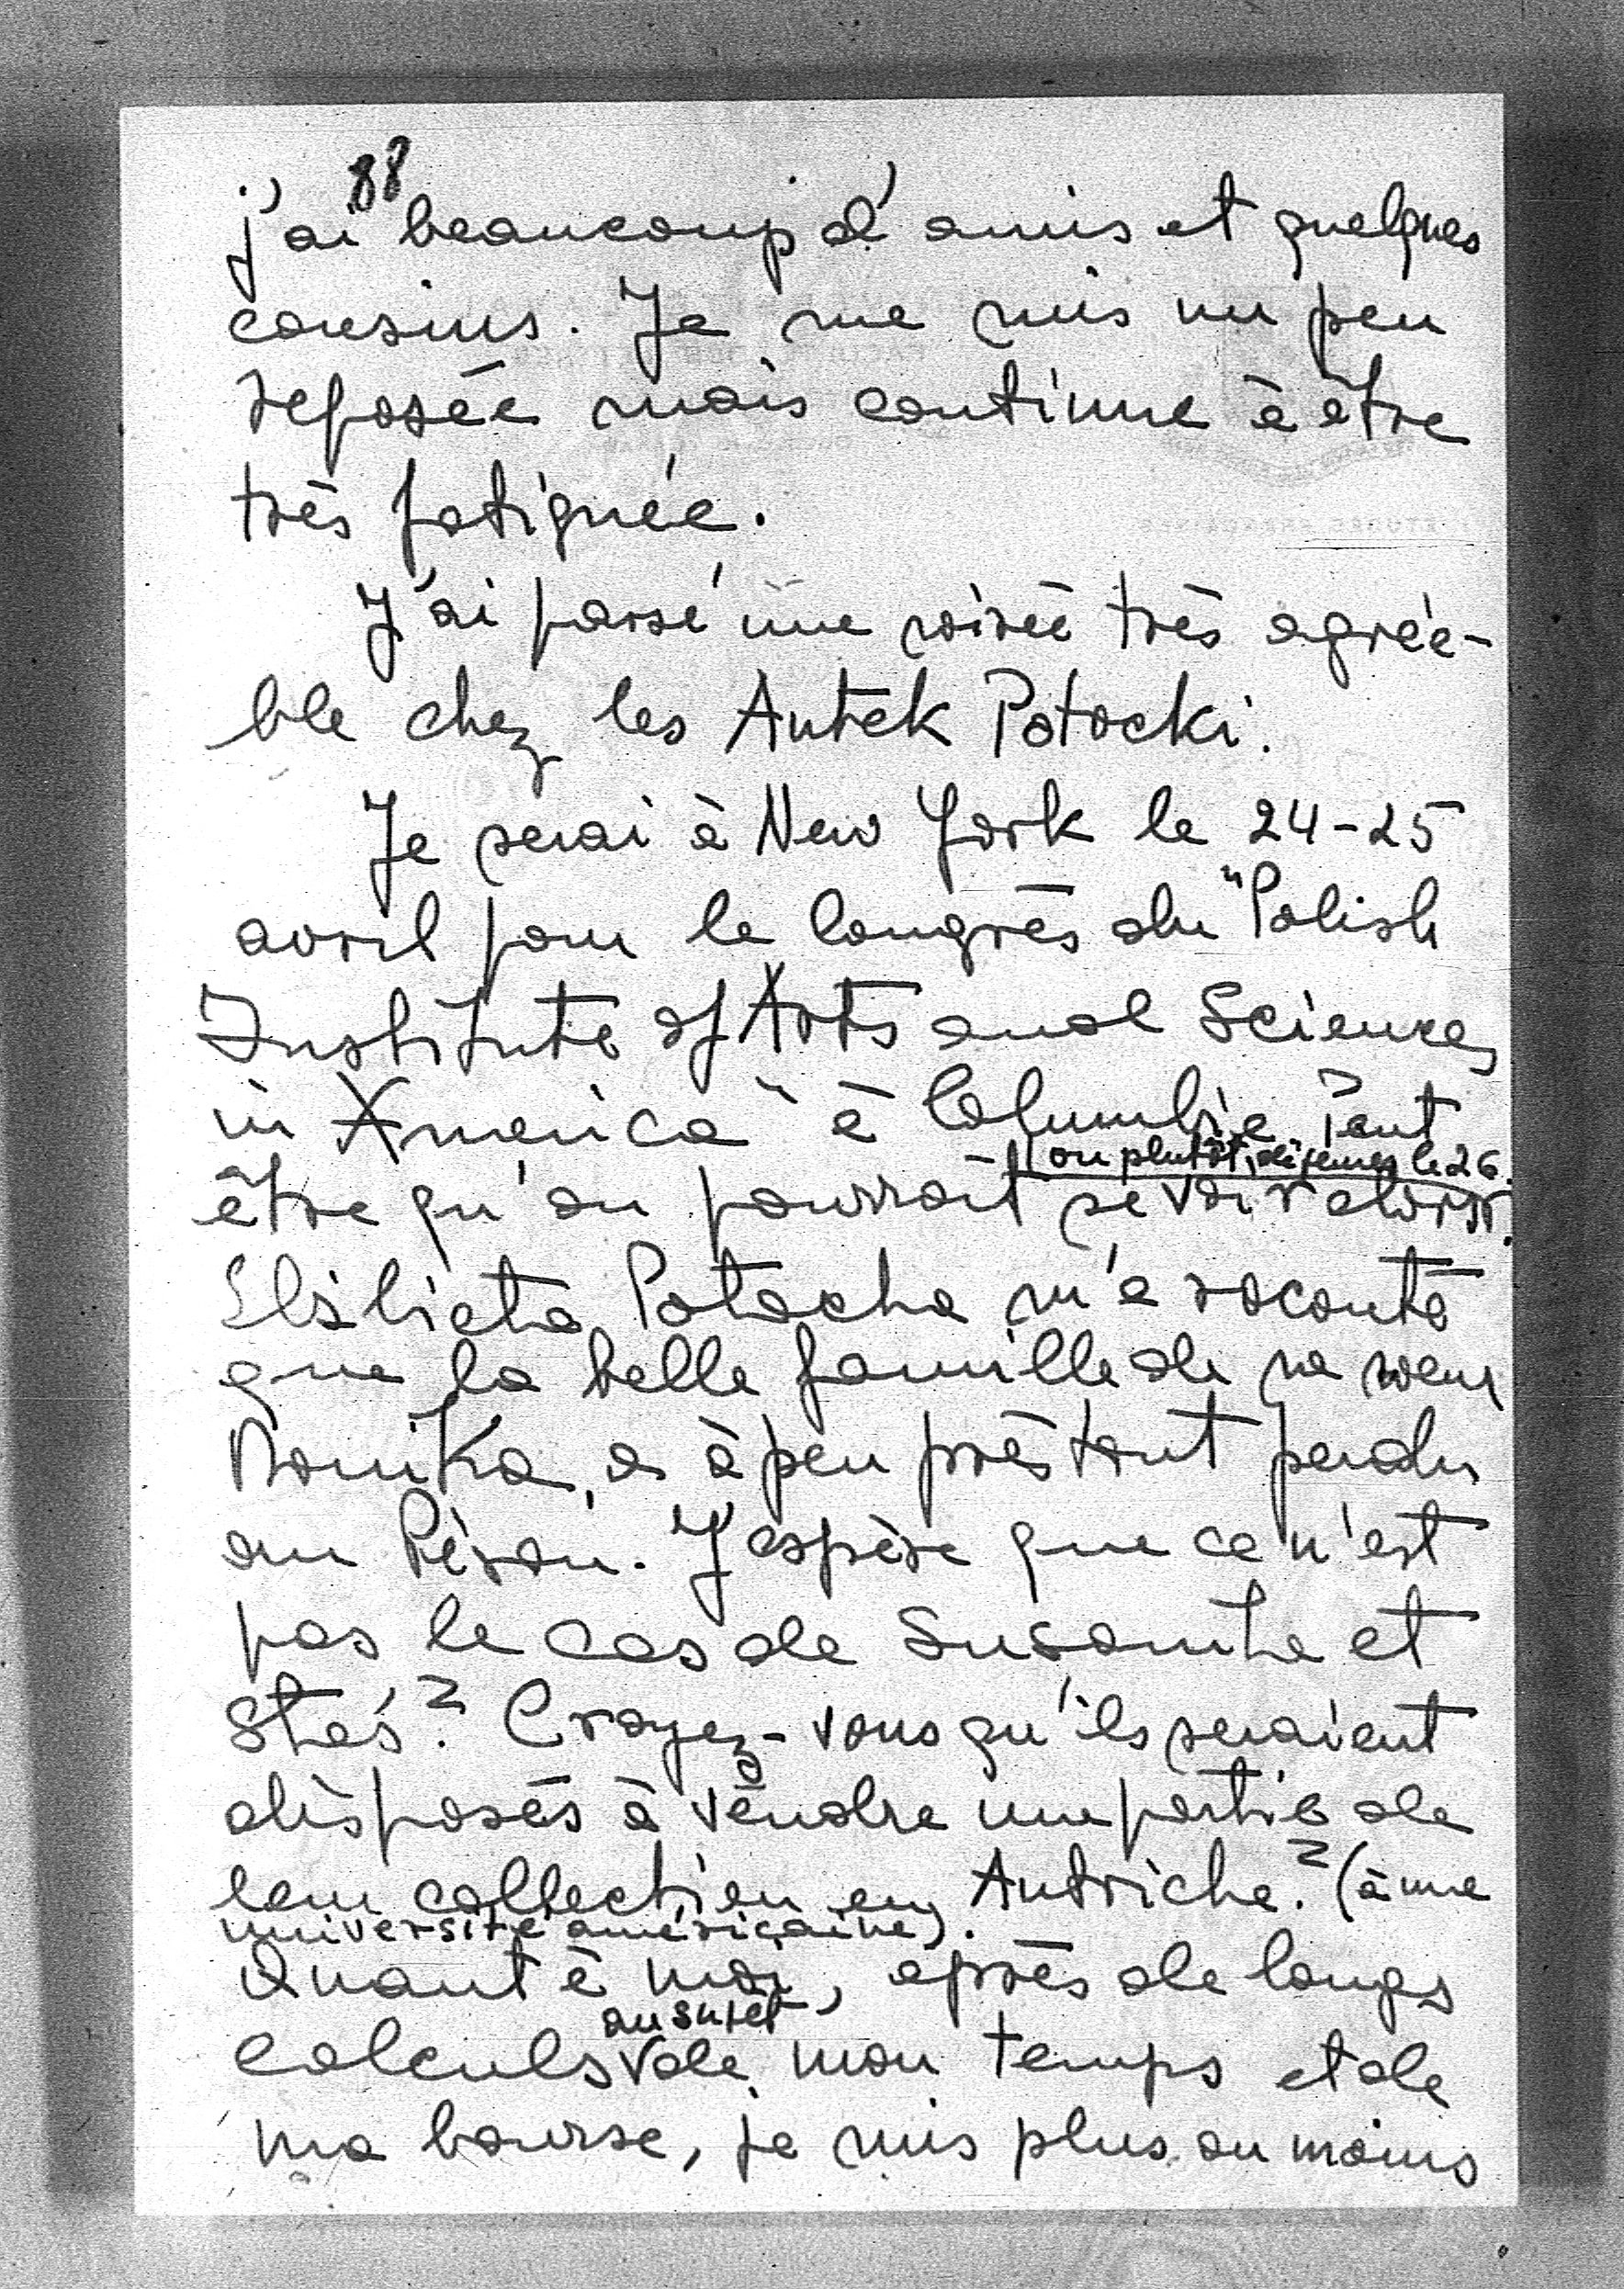 88
j'ai beaucoup d'amis et quelques
cousins. Je me suis un peu
reposée mais continue à être
très fatiguée.
J'ai passé une soirée très agréa-
ble chez les Antek Potocki.
Je serai à New York le 24-25
avril pour le Congrès du "Polish
Institute of Arts and Sciences
in America" à Columbia. Peut
ou plutôt, déjeuner le 26.
être qu'on pourrait se voir alors.
Elżbieta Potocka m'a raconté
que la belle famille de sa soeur
Monika, a à peu près tout perdu
au Pérou. J'espère que ce n'est
pas le cas de Susanita et
Staś? Croyez-vous qu'ils seraient
disposés à vendre une partie de
leur collection en Autriche? (à une
université américaine).
Quant à moi, après de longs
au sujet
calculs de mon temps et de
ma bourse, je suis plus ou moins